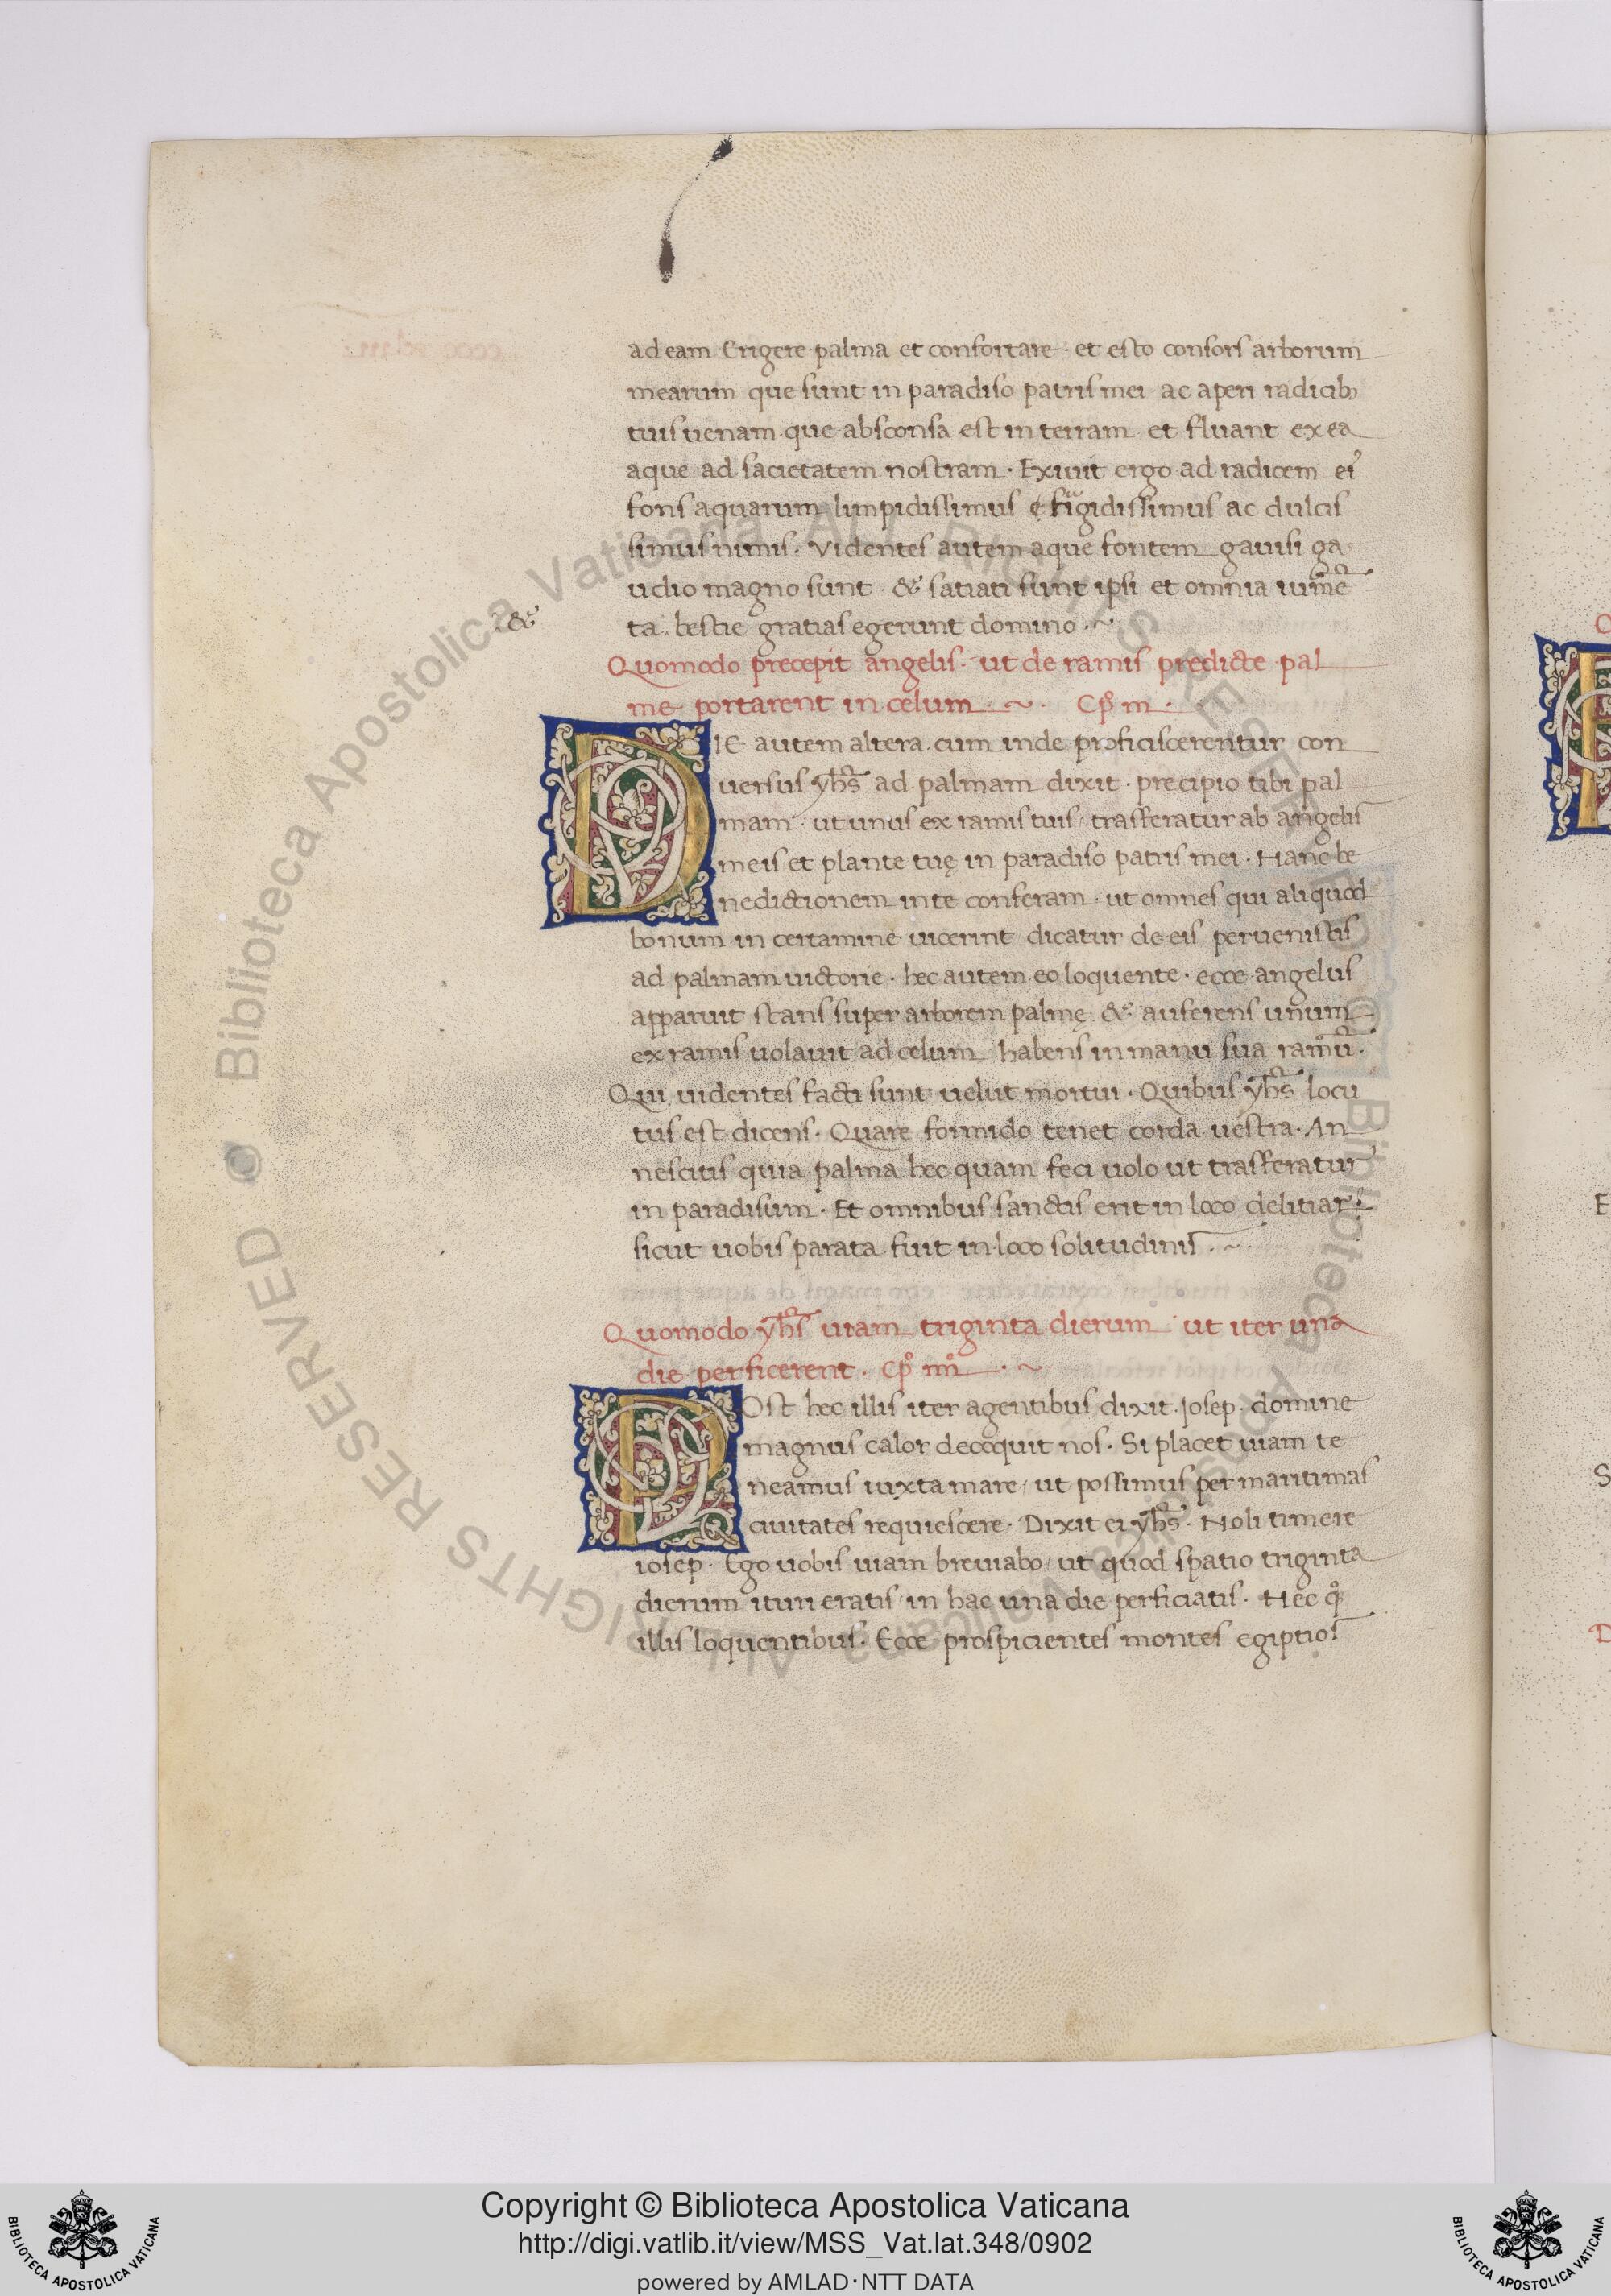 ad eam Erigere palma et confortare · et esto consors arborum
mearum que sunt in paradiso patris mei ac aperi radicibꝰ
tuis uenam que absconsa est in terram et fluant ex ea
aque ad sacietatem nostram · Exiuit ergo ad radicem eiꝰ
fons aquarum limpidissimus & frigidissimus ac dulcis
simus nimis · Videntes autem aque fontem gauisi ga
udio magno sunt · & satiati sunt ipsi et omnia iumē
&
ta bestie gratias egerunt domino · ~
Quomodo precepit angelis · ut de ramis predicte pal
me portarent in celum · ~ · Cpͦ m ·
DIE autem altera cum inde proficiscerentur con
uersus yhs̄ ad palmam dixit · precipio tibi pal
mam · ut unus ex ramis tuis / trasferatur ab angelis
meis et plante tuę in paradiso patris mei · Hanc be
nedictionem in te conferam · ut omnes qui aliquod
bonum in certamine uicerint dicatur de eis peruenistis
ad palmam uictorie · hec autem eo loquente · ecce angelus
apparuit stans super arborem palmę & auferens unum
ex ramis uolauit ad celum habens in manu sua ramū ·
Qui uidentes facti sunt uelut mortui · Quibus yhs̄ locu
tus est dicens · Quare formido tenet corda uestra · An
nescitis quia palma hec quam feci uolo ut trasferatur
in paradisum · Et omnibus sanctis erit in loco delitiaꝝ
sicut uobis parata fuit in loco solitudinis · ~
Quomodo yhs̄ uiam triginta dierum ut iter una
die perficerent · Cpͦ iiiiͦ · ~
POst hec illis iter agentibus dixit · Josep · domine
magnus calor decoquit nos · Si placet uiam te
neamus iuxta mare / ut possimus per maritimas
ciuitates requiescere · Dixit ei yhs̄ · Noli timere
iosep · Ego uobis uiam breuiabo / ut quod spatio triginta
dierum ituri eratis / in hac una die perficiatis · Hec qͦ
illis loquentibus · Ecce prospicientes montes egiptios
© Biblioteca Apostolica Vaticana ALL RIGHTS RESERVED
Copyright © Biblioteca Apostolica Vaticana
http://digi.vatlib.it/view/MSS_Vat.lat.348/0902
powered by AMLAD·NTT DATA
BIBLIOTECA APOSTOLICA VATICANA
BIBLIOTECA APOSTOLICA VATICANA